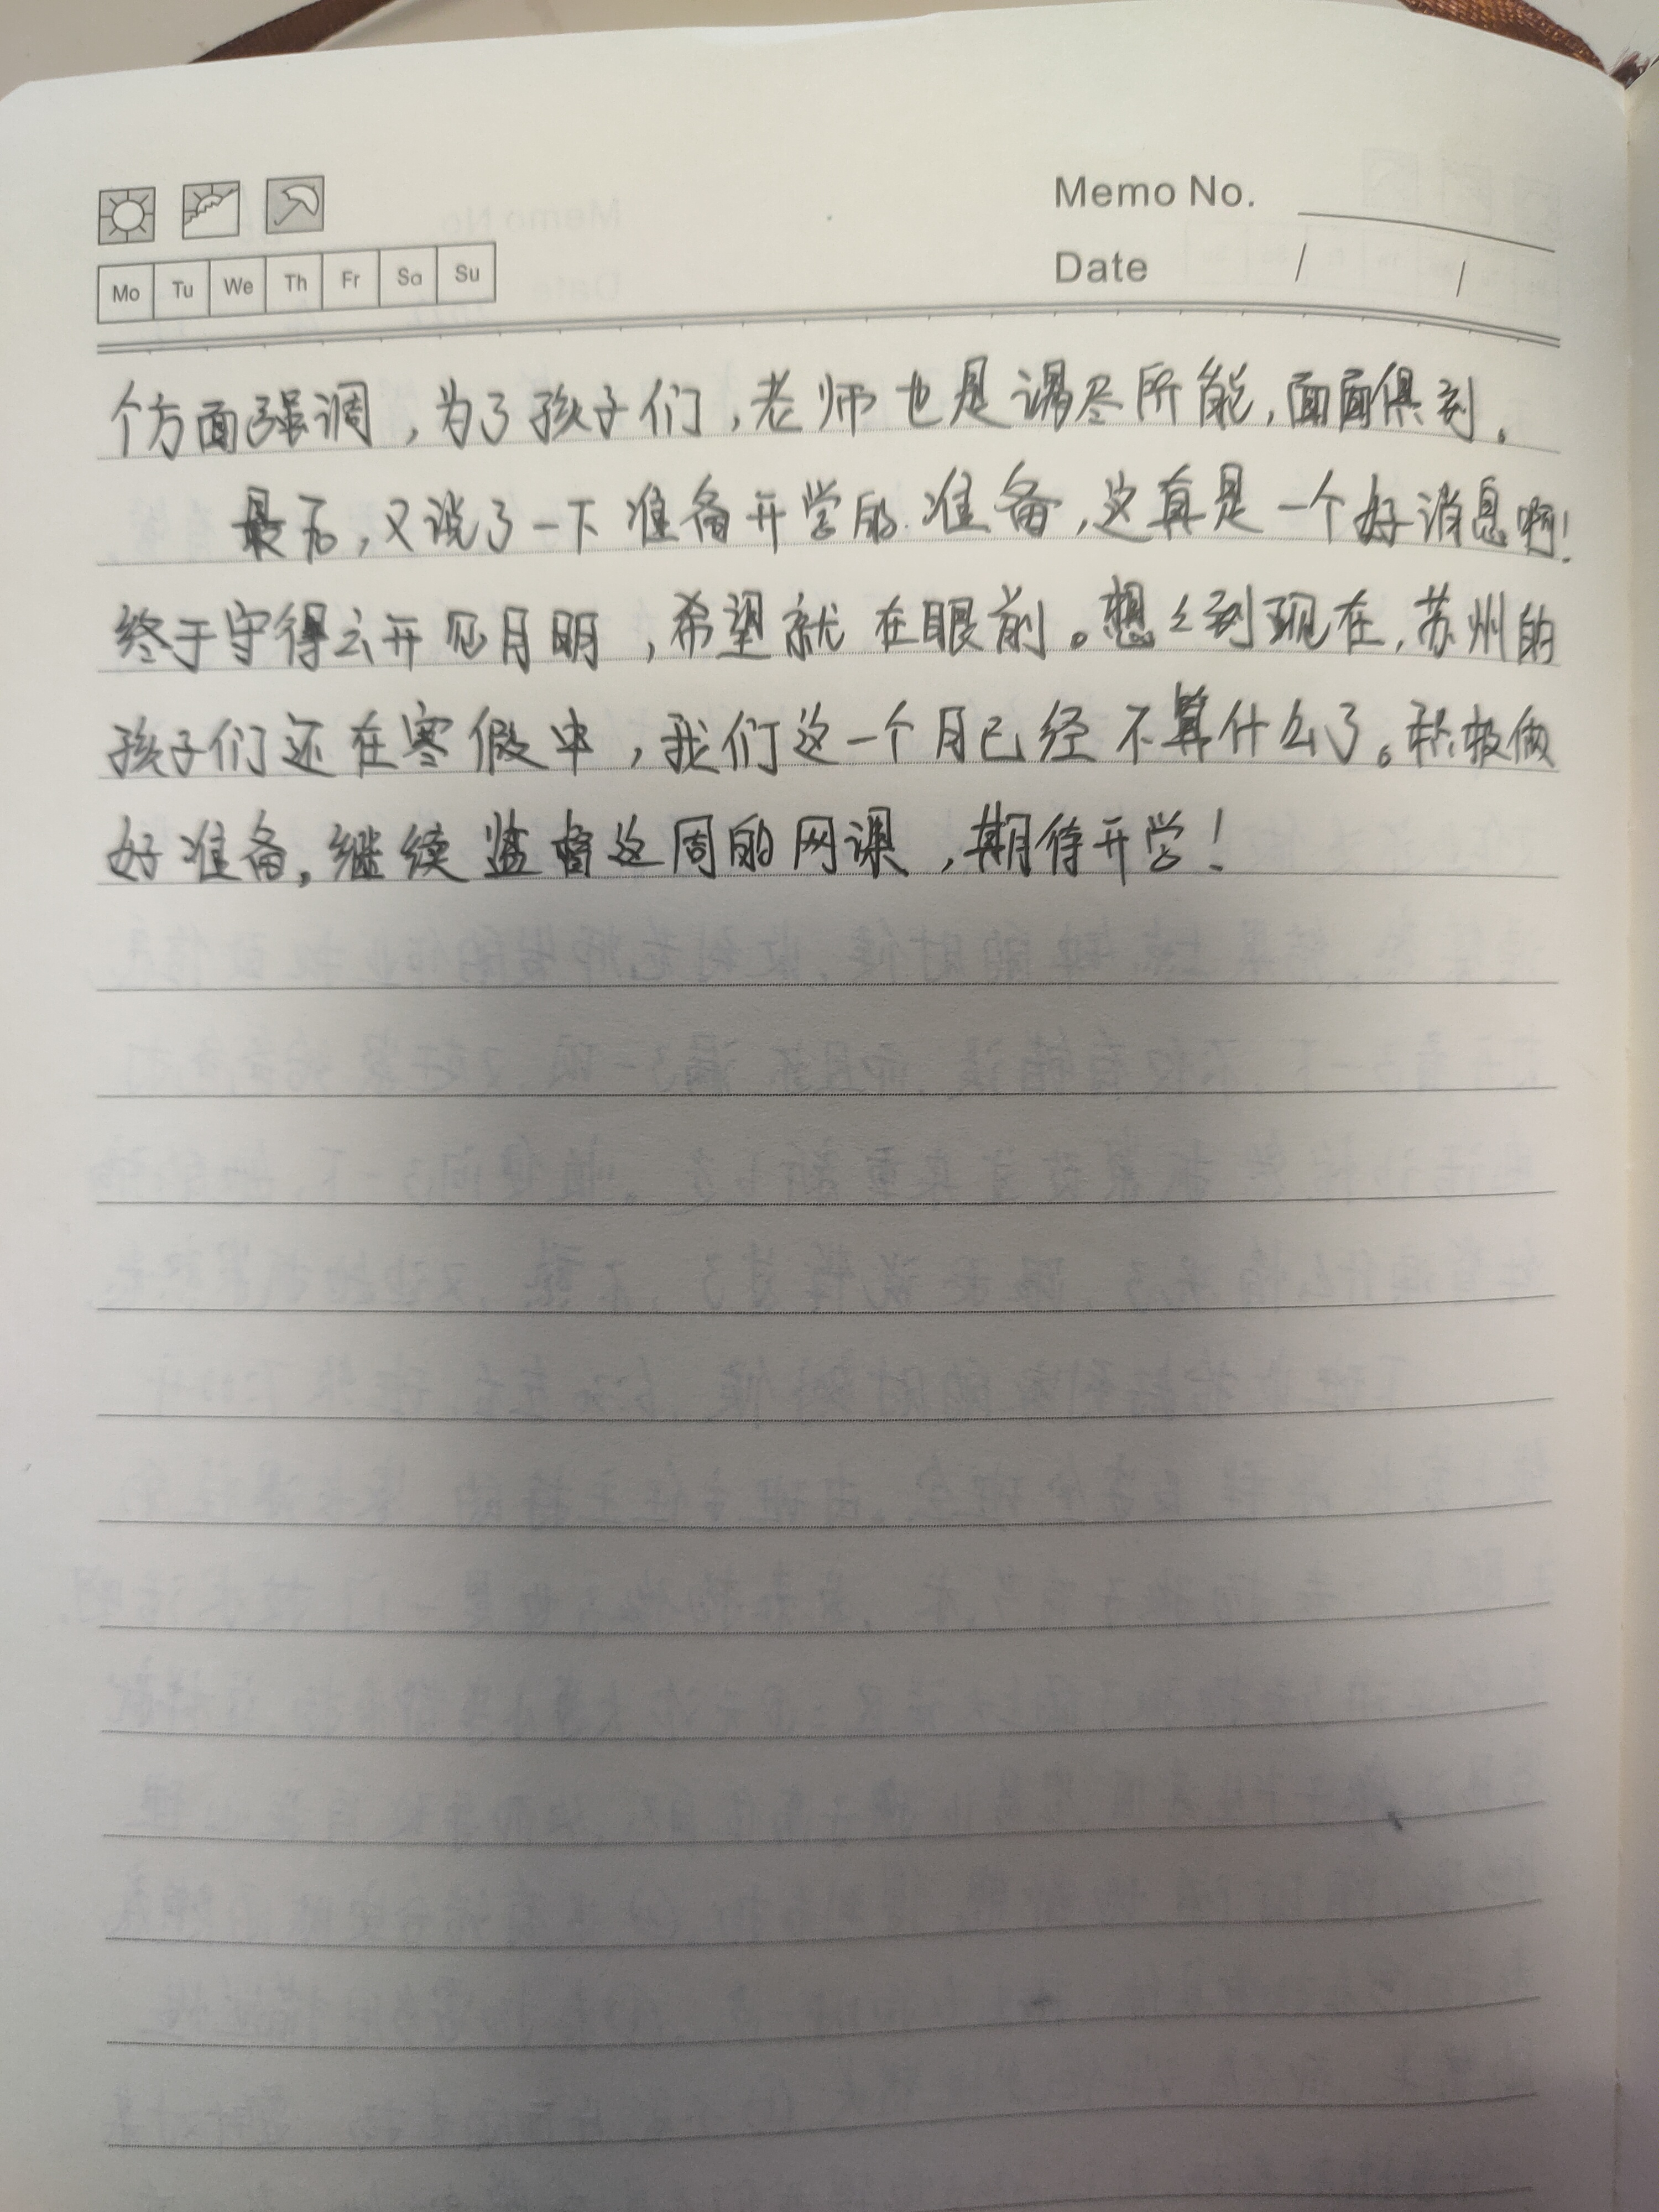 Memo No.
Date / /
Mo Tu We Th Fr Sa Su
个方面强调，为了孩子们，老师也是竭尽所能，面面俱到。
最后，又说了一下准备开学的准备，这真是一个好消息啊！
终于守得云开见月明，希望就在眼前。想想到现在，苏州的
孩子们还在寒假中，我们这一个月已经不算什么了。积极做
好准备，继续监督这周的网课，期待开学！